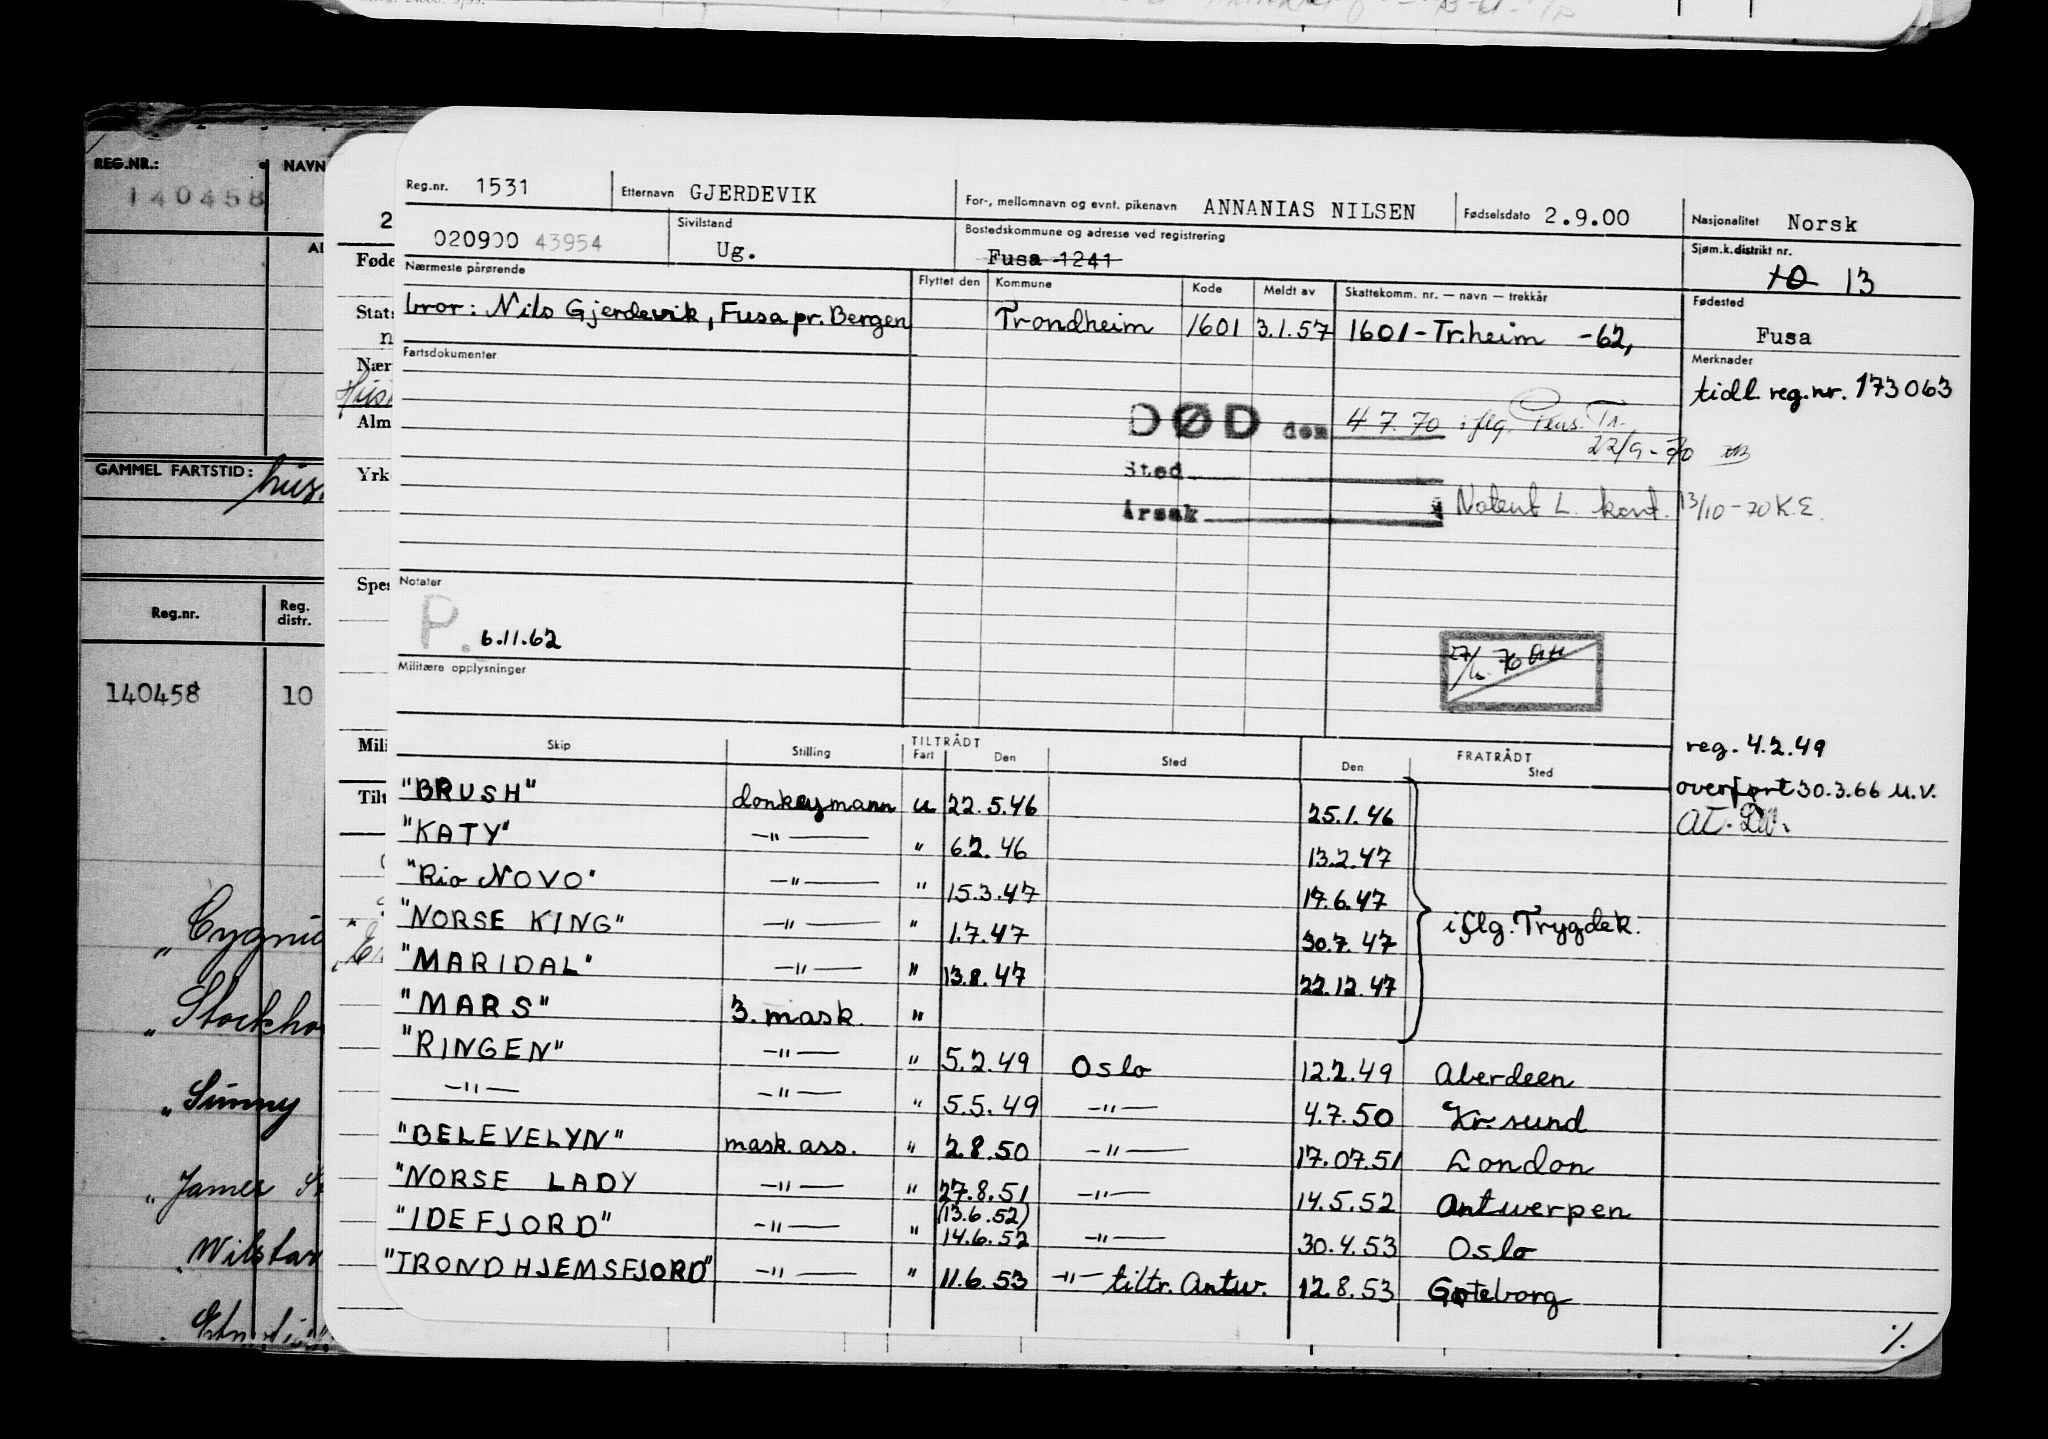 REG.NR.: NAVN
140458
GAMMEL FARTSTID:
Reg.nr. Reg. distr.
140458 10
Reg.nr. 1531 Etternavn GJERDEVIK For-, mellomnavn og evnt. pikenavn ANNANIAS NILSEN Fødselsdato 2.9.00 Nasjonalitet Norsk
020900 43954 Sivilstand Ug. Bostedskommune og adresse ved registrering Fusa 1241 Sjøm.k.distrikt nr. 10 13
Nærmeste pårørende Flyttet den Kommune Kode Meldt av Skattekomm. nr. — navn — trekkår Fødested
bror: Nils Gjerdevik, Fusa pr. Bergen Trondheim 1601 3.1.57 1601-Tr.heim -62, Fusa
Fartsdokumenter Merknader
tidl. reg.nr. 173063
DØD den 4 7. 70 iflg. Pens. Tr.
22/9-70
Sted
Årsak Notert L. kort. 13/10-70 K.E.
Notater
P. 6.11.62
Militære opplysninger
reg. 4.2.49
overført 30.3.66 U.V.
Skip Stilling TILTRÅDT Fart Den Sted FRATRÅDT Den Sted
"BRUSH" donkeymann u 22.5.46 25.1.46
"KATY" —"— " 6.2.46 13.2.47
"Rio NOVO" —"— " 15.3.47 17.6.47
"NORSE KING" —"— " 1.7.47 30.7.47 iflg. Trygdek.
"MARIDAL" —"— " 13.8.47 22.12.47
"MARS" 3. mask. "
"RINGEN" —"— " 5.2.49 Oslo 12.2.49 Aberdeen
—"— —"— " 5.5.49 —"— 4.7.50 Kr.sund
"BELEVELYN" mask. ass. " 2.8.50 —"— 17.07.51 London
"NORSE LADY —"— " 27.8.51 —"— 14.5.52 Antwerpen
(13.6.52)
"IDEFJORD" —"— " 14.6.52 —"— 30.4.53 Oslo
"TRONDHJEMSFJORD" —"— " 11.6.53 —"— tiltr. Antw. 12.8.53 Gøteborg